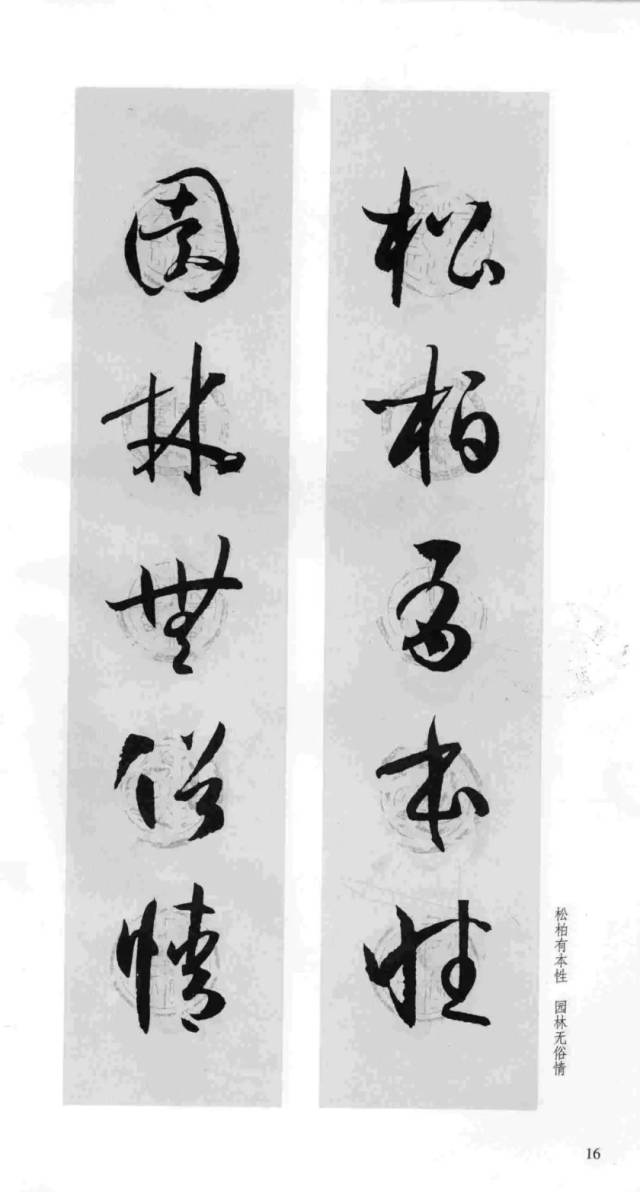 松柏有本性
園林無俗情
松柏有本性 园林无俗情
16